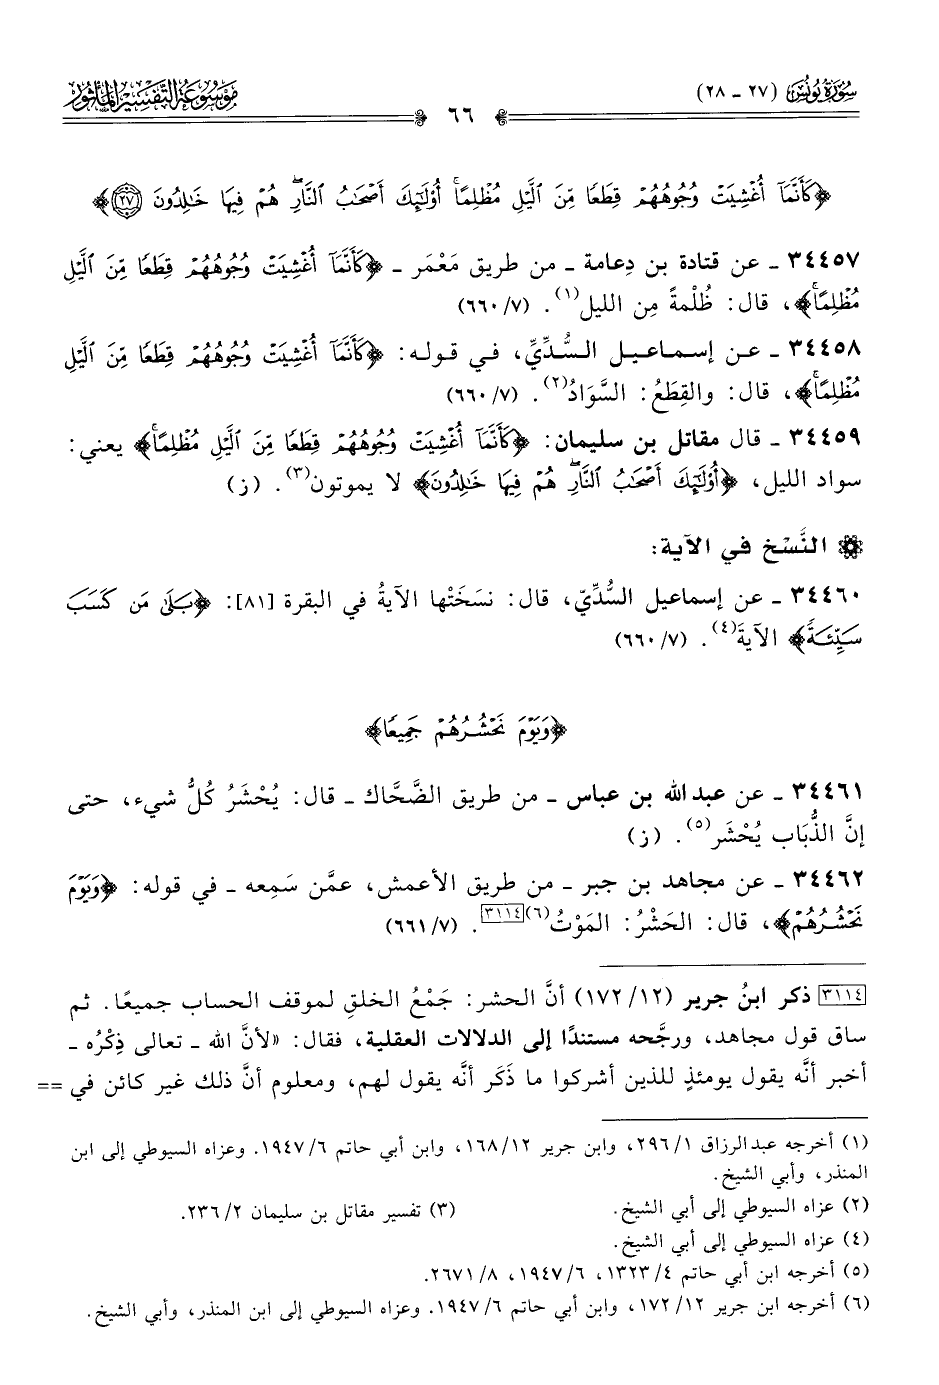 سُورَةُ يُونُسَ (٢٧ - ٢٨)
٦٦
مَوْسُوعَةُ التَّفْسِيرِ المَأْثُورِ
﴿كَأَنَّمَآ أُغْشِيَتْ وُجُوهُهُمْ قِطَعًا مِّنَ ٱلَّيْلِ مُظْلِمًاۚ أُو۟لَـٰٓئِكَ أَصْحَـٰبُ ٱلنَّارِۖ هُمْ فِيهَا خَـٰلِدُونَ ۝٢٧﴾
٣٤٤٥٧ ـ عن قتادة بن دِعامة ـ من طريق مَعْمَر ـ ﴿كَأَنَّمَآ أُغْشِيَتْ وُجُوهُهُمْ قِطَعًا مِّنَ ٱلَّيْلِ
مُظْلِمًاۚ﴾، قال: ظُلْمةً مِن الليل(١). (٦٦٠/٧)
٣٤٤٥٨ ـ عن إسماعيل السُّدِّيِّ، في قوله: ﴿كَأَنَّمَآ أُغْشِيَتْ وُجُوهُهُمْ قِطَعًا مِّنَ ٱلَّيْلِ
مُظْلِمًاۚ﴾، قال: والقِطَعُ: السَّوَادُ(٢). (٦٦٠/٧)
٣٤٤٥٩ ـ قال مقاتل بن سليمان: ﴿كَأَنَّمَآ أُغْشِيَتْ وُجُوهُهُمْ قِطَعًا مِّنَ ٱلَّيْلِ مُظْلِمًاۚ﴾ يعني:
سواد الليل، ﴿أُو۟لَـٰٓئِكَ أَصْحَـٰبُ ٱلنَّارِۖ هُمْ فِيهَا خَـٰلِدُونَ﴾ لا يموتون(٣). (ز)
النَّسْخ في الآية:
٣٤٤٦٠ ـ عن إسماعيل السُّدِّيِّ، قال: نسَخَتْها الآيةُ في البقرة [٨١]: ﴿بَلَىٰ مَن كَسَبَ
سَيِّئَةً﴾ الآيةَ(٤). (٦٦٠/٧)
﴿وَيَوْمَ نَحْشُرُهُمْ جَمِيعًا﴾
٣٤٤٦١ ـ عن عبد الله بن عباس ـ من طريق الضَّحَّاك ـ قال: يُحْشَرُ كُلُّ شيء، حتى
إنَّ الذُّبَاب يُحْشَر(٥). (ز)
٣٤٤٦٢ ـ عن مجاهد بن جبر ـ من طريق الأعمش، عمَّن سَمِعه ـ في قوله: ﴿وَيَوْمَ
نَحْشُرُهُمْ﴾، قال: الحَشْرُ: المَوْتُ(٦)[٣١١٤]. (٦٦١/٧)
[٣١١٤] ذكر ابنُ جرير (١٧٢/١٢) أنَّ الحشر: جَمْعُ الخلقِ لموقف الحساب جميعًا. ثم
ساق قول مجاهد، ورجَّحه مستندًا إلى الدلالات العقلية، فقال: «لأنَّ الله ـ تعالى ذِكْرُه ـ
أخبر أنَّه يقول يومئذٍ للذين أشركوا ما ذَكَر أنَّه يقول لهم، ومعلوم أنَّ ذلك غير كائن في ==
(١) أخرجه عبدالرزاق ٢٩٦/١، وابن جرير ١٦٨/١٢، وابن أبي حاتم ١٩٤٧/٦. وعزاه السيوطي إلى ابن
المنذر، وأبي الشيخ.
(٢) عزاه السيوطي إلى أبي الشيخ. (٣) تفسير مقاتل بن سليمان ٢٣٦/٢.
(٤) عزاه السيوطي إلى أبي الشيخ.
(٥) أخرجه ابن أبي حاتم ١٣٢٣/٤، ١٩٤٧/٦، ٢٦٧١/٨.
(٦) أخرجه ابن جرير ١٧٢/١٢، وابن أبي حاتم ١٩٤٧/٦. وعزاه السيوطي إلى ابن المنذر، وأبي الشيخ.